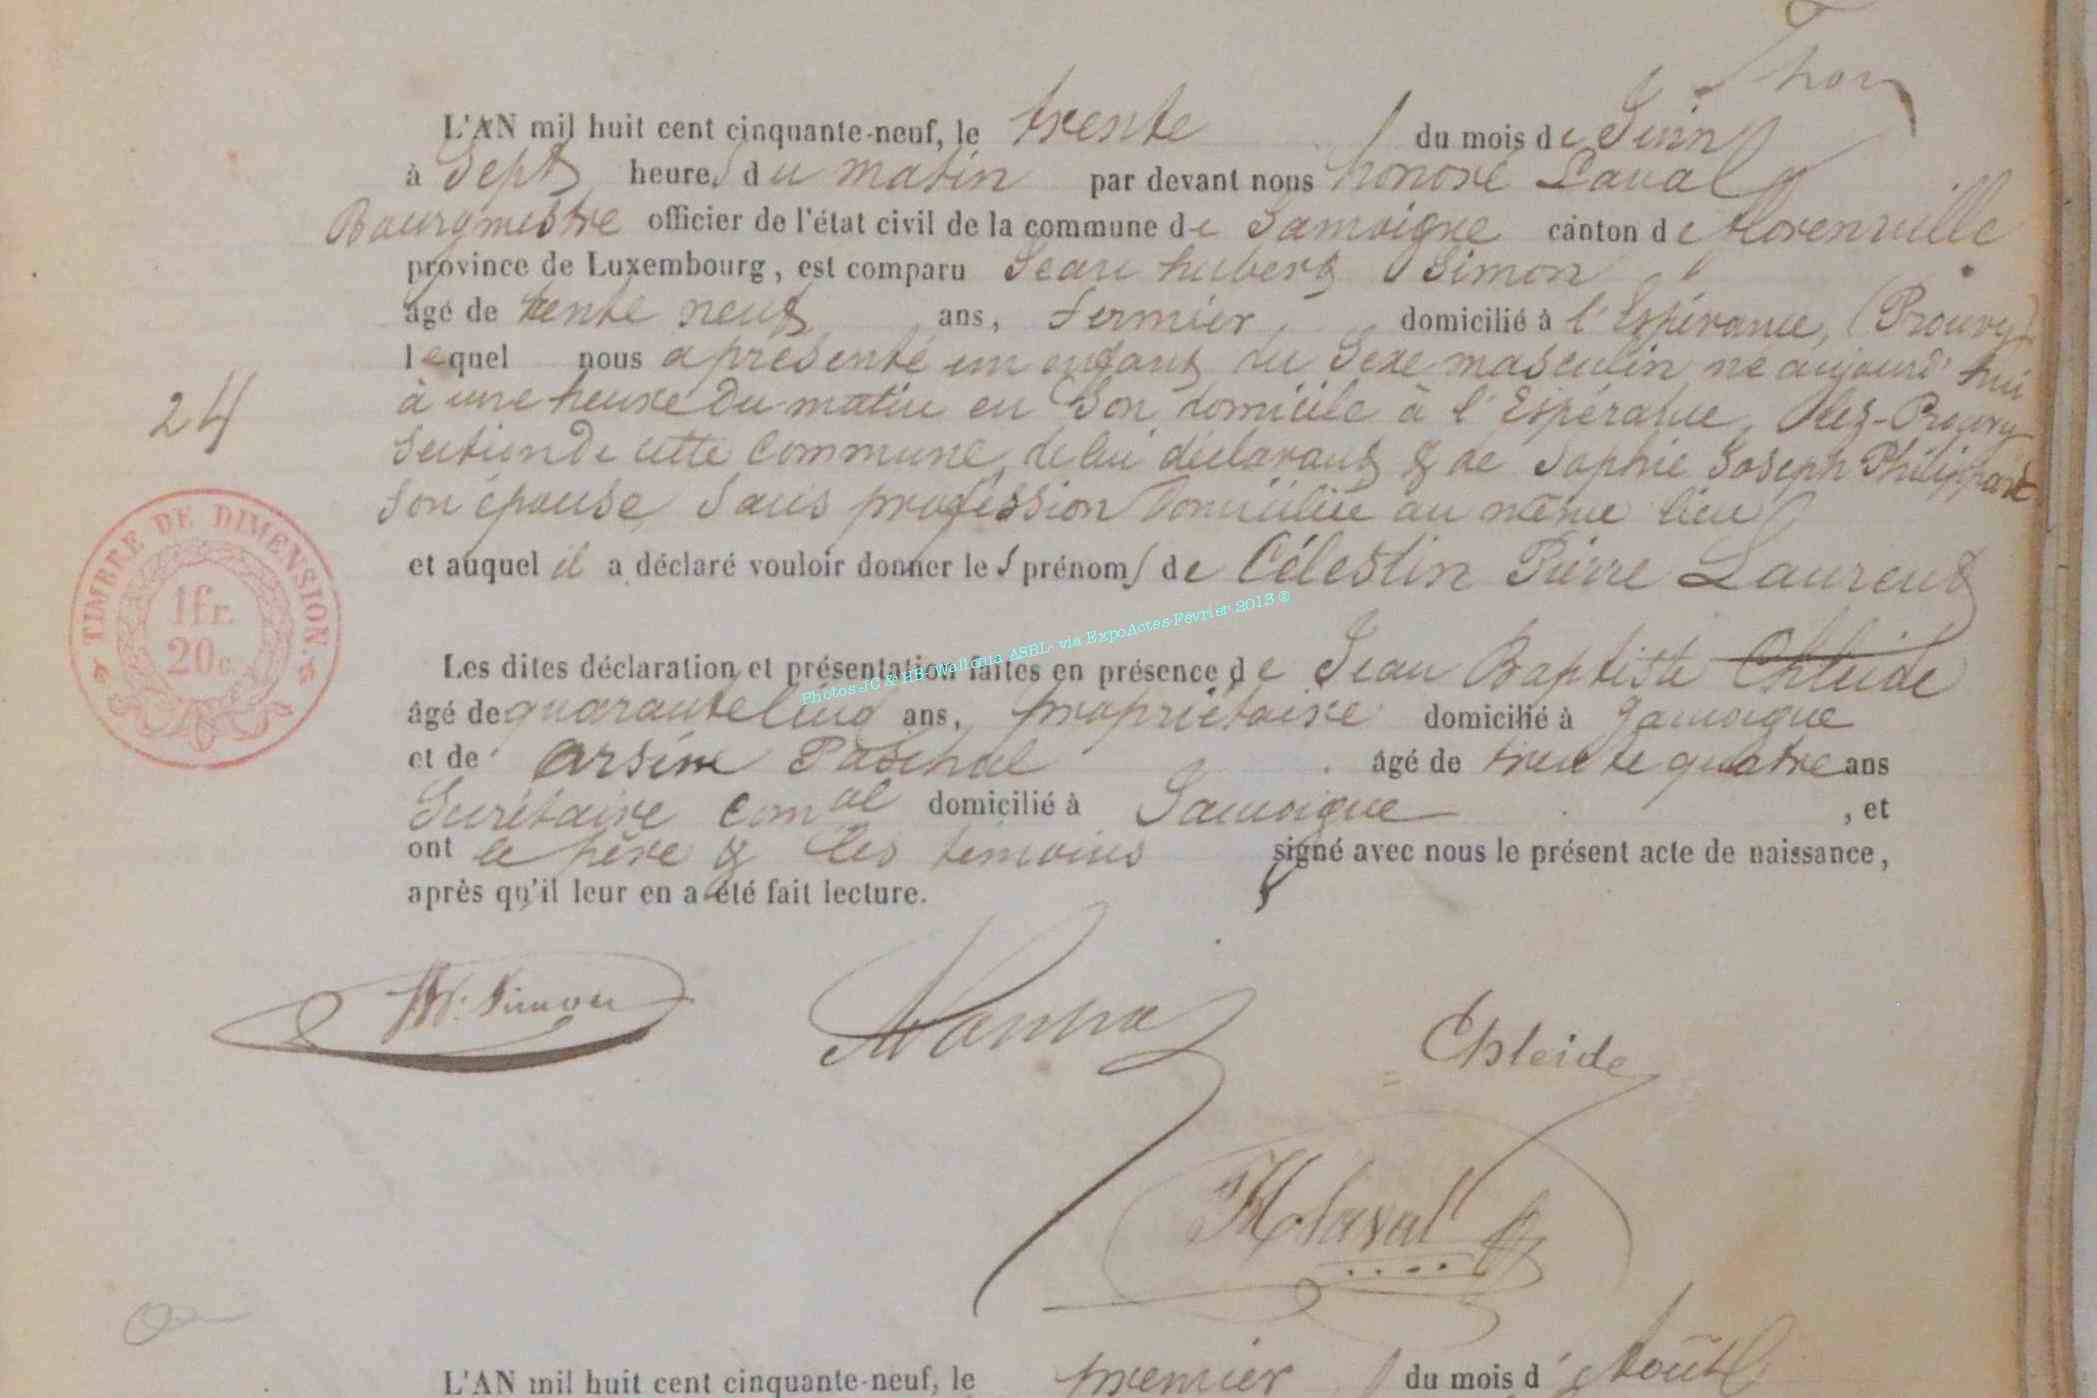 Thon
L'AN mil huit cent cinquante-neuf, le trente du mois de Juin
à Sept heures du matin par devant nous honoré Laval
Bourgmestre officier de l'état civil de la commune de Jamoigne canton de florenville
province de Luxembourg, est comparu Jean hubert Simon
âgé de trente neuf ans, fermier, domicilié à l'Espérance, (Prouvy)
lequel nous a présenté un enfant du Sexe masculin né aujourd'hui
24
à une heure du matin en Son domicile à l'Espérance, lez-Prouvy
Section de cette Commune, de lui déclarant & de Sophie Joseph Philippart
Son épouse, Sans profession domiciliée au même lieu
et auquel il a déclaré vouloir donner les prénoms de Célestin Pierre Laurent
TIMBRE DE DIMENSION.
1fr.
20c.
Photos-JC & HB-Wallonia ASBL- via ExpoActes-Février 2013 ®
Les dites déclaration et présentation faites en présence de Jean Baptiste Chleide
âgé de quarante cinq ans, propriétaire domicilié à Jamoigne
et de Arsène Paschal âgé de trente quatre ans
Secrétaire comal domicilié à Jamoigne , et
ont le père & les témoins signé avec nous le présent acte de naissance,
après qu'il leur en a été fait lecture.
Simon
Chleide
Laval
L'AN mil huit cent cinquante-neuf, le premier du mois d'Août